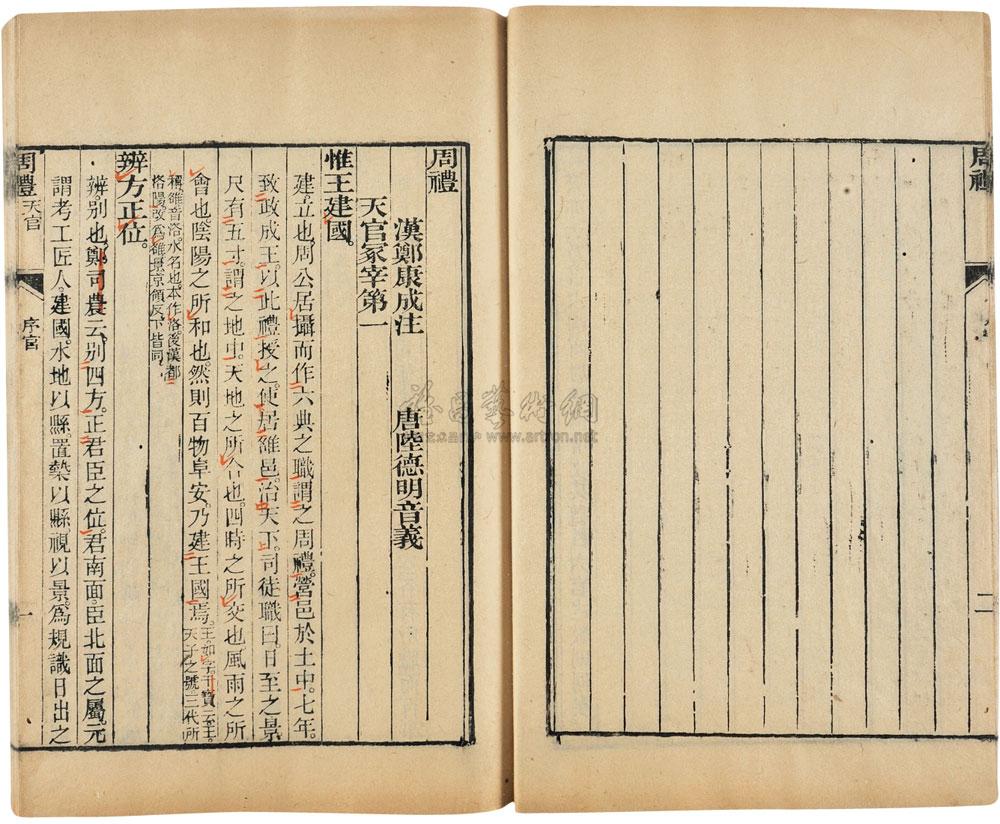 周禮
二
周禮
漢鄭康成注 唐陸德明音義
天官冢宰第一
惟王建國。
建立也。周公居攝而作六典之職謂之周禮。營邑於土中。七年。
致政成王。以此禮授之。使居雒邑。治天下。司徒職曰。日至之景。
尺有五寸。謂之地中。天地之所合也。四時之所交也。風雨之所
會也。陰陽之所和也。然則百物阜安。乃建王國焉。王。如字。干寶云。王。
天子之號。三代所
稱。雒音洛。水名也。本作洛。後漢都
洛陽。改爲雒。景。京領反。下皆同。
辨方正位。
辨。別也。鄭司農云。別四方。正君臣之位。君南面。臣北面之屬。元
謂考工匠人。建國。水地以縣。置槷以縣。視以景。爲規識日出之
周禮 天官 序官 一
雅昌藝術網
www.artron.net